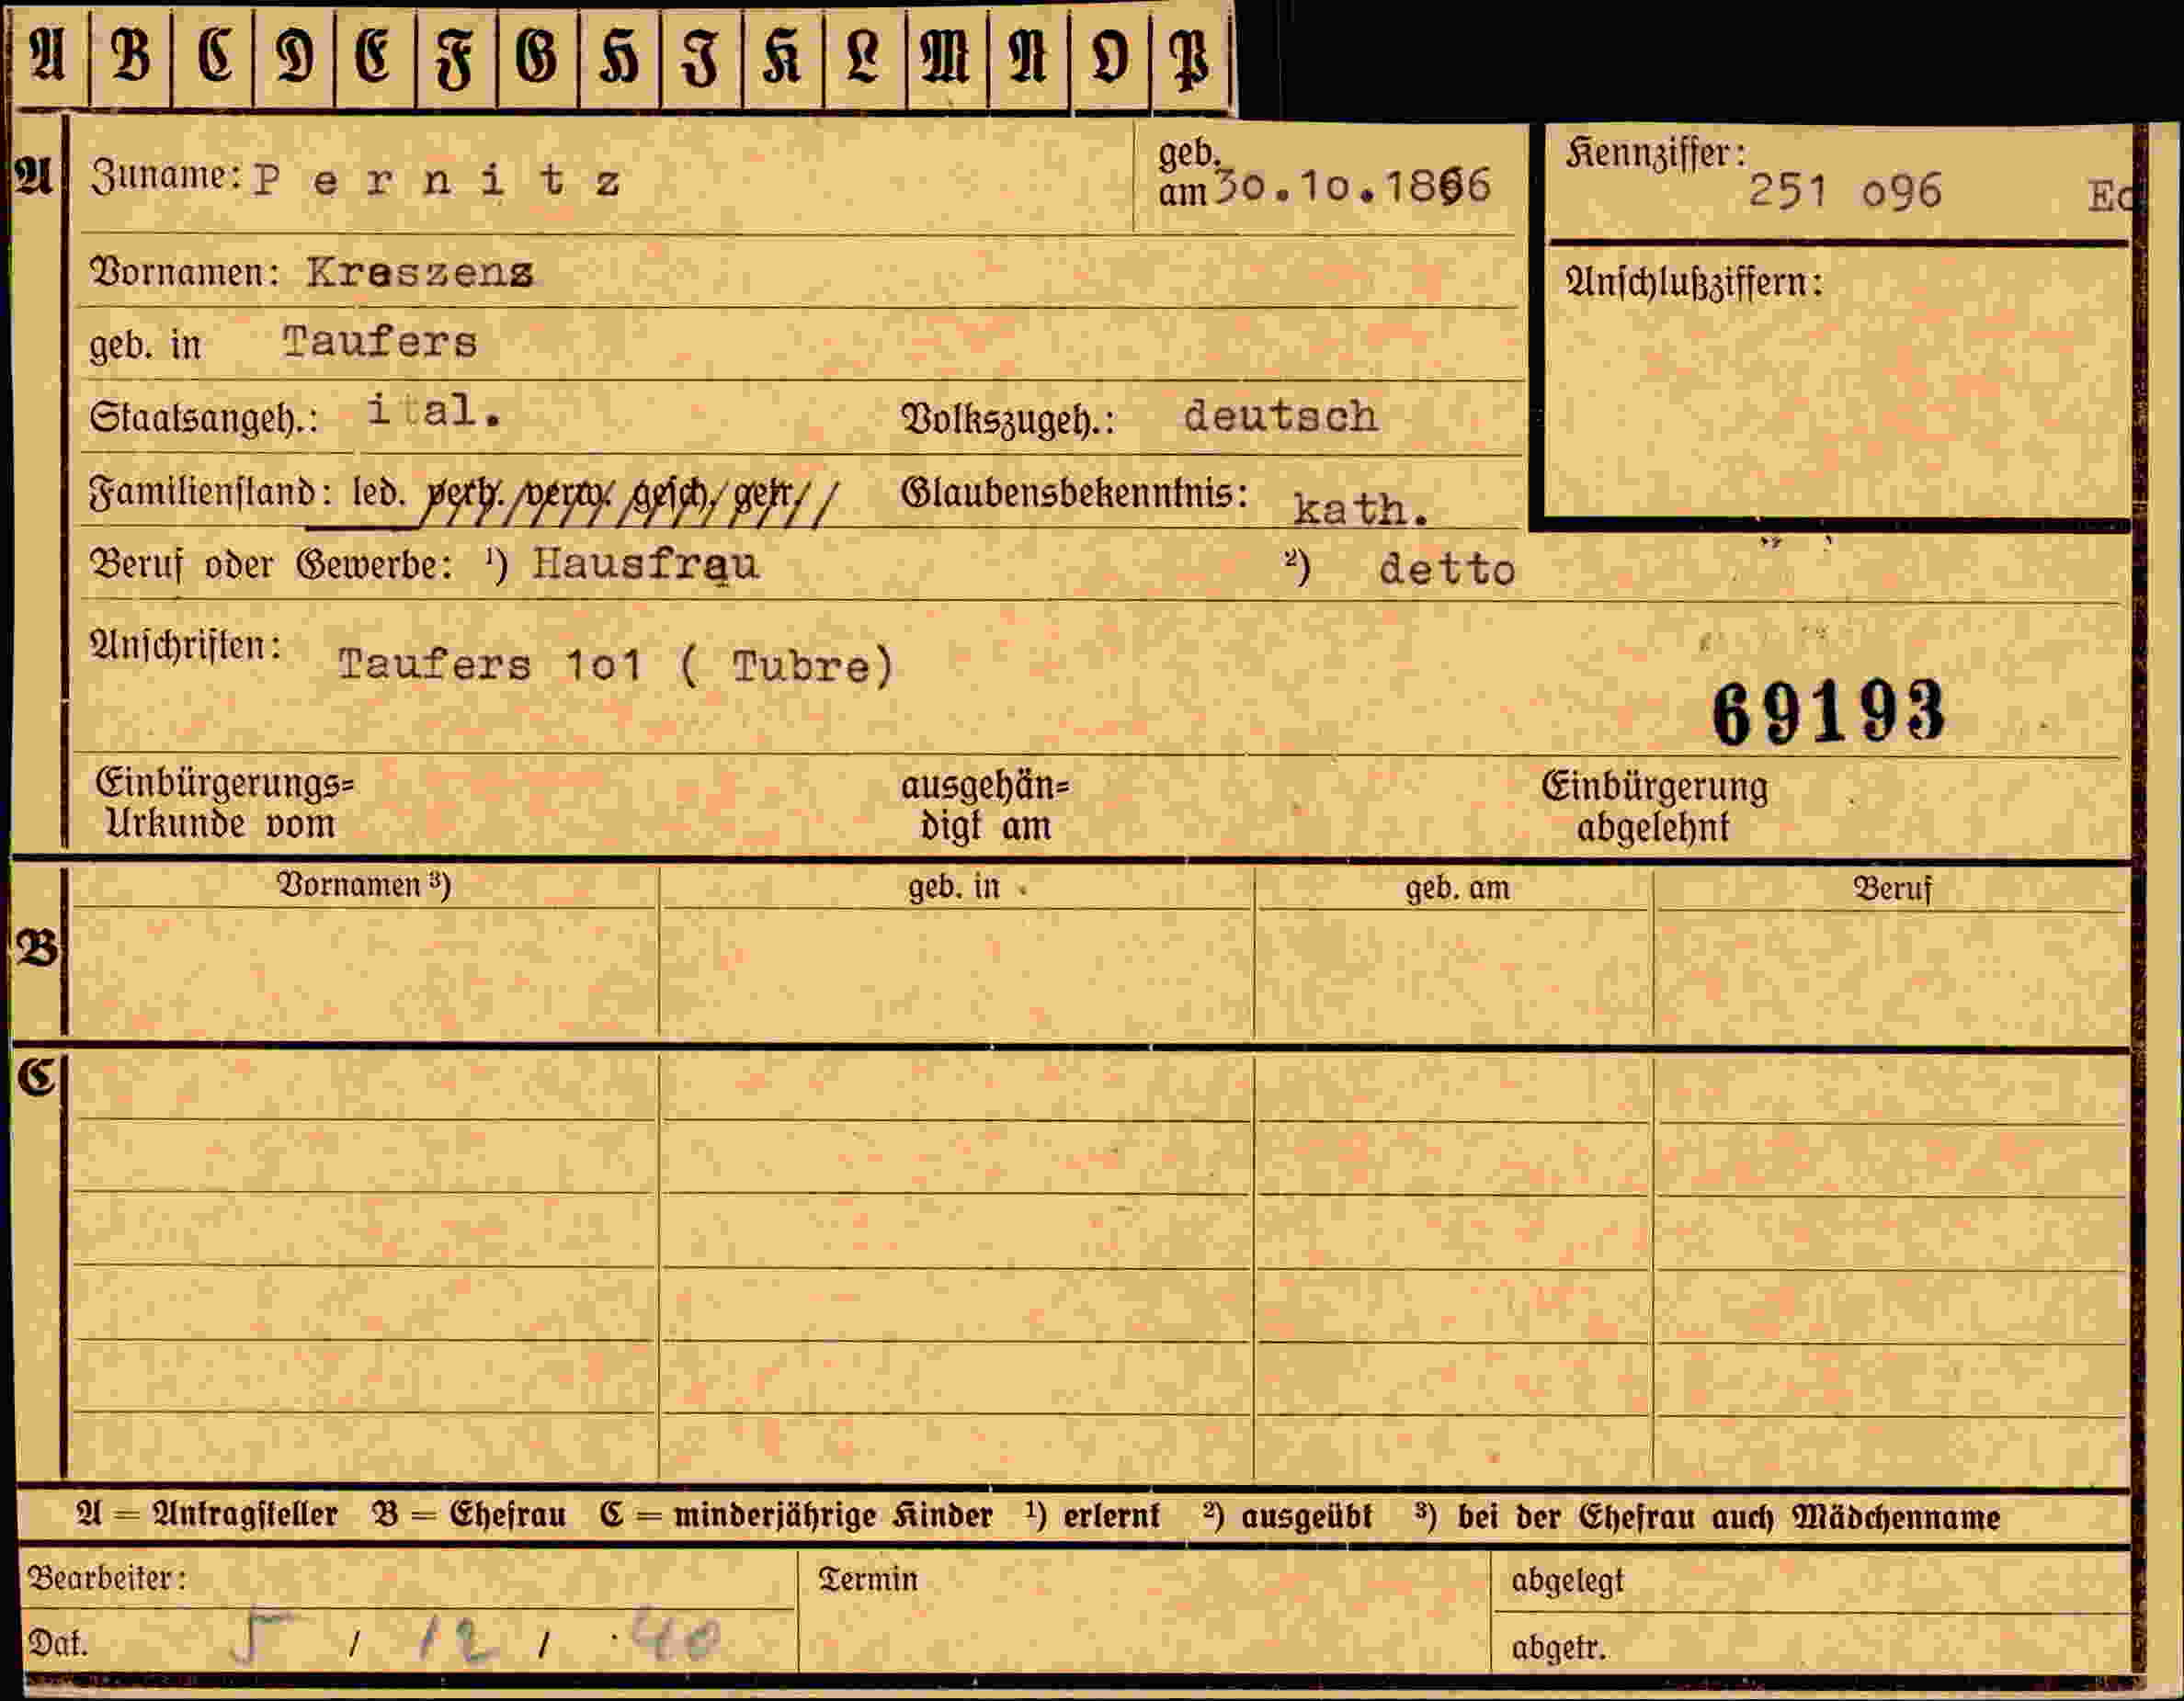 A B C D E F G H I K L M N O P
A Zuname: Pernitz geb. am 30.10.1866 Kennziffer: 251 o96
Vornamen: Kreszenz Anschlußziffern:
geb. in Taufers
Staatsangeh.: ital. Volkszugeh.: deutsch
Familienstand: led. verh. verw. gesch. getr. Glaubensbekenntnis: kath.
Beruf oder Gewerbe: ¹) Hausfrau ²) detto
Anschriften: Taufers 1o1 ( Tubre)
69193
Einbürgerungs= Urkunde vom ausgehän= digt am Einbürgerung abgelehnt
Vornamen ³) geb. in geb. am Beruf
B
C
A = Antragsteller B = Ehefrau C = minderjährige Kinder ¹) erlernt ²) ausgeübt ³) bei der Ehefrau auch Mädchenname
Bearbeiter: Termin abgelegt
Dat. 5 / 12 / 40 abgetr.